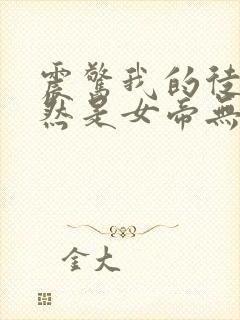 震驚我的徒
然是女帝無
金大